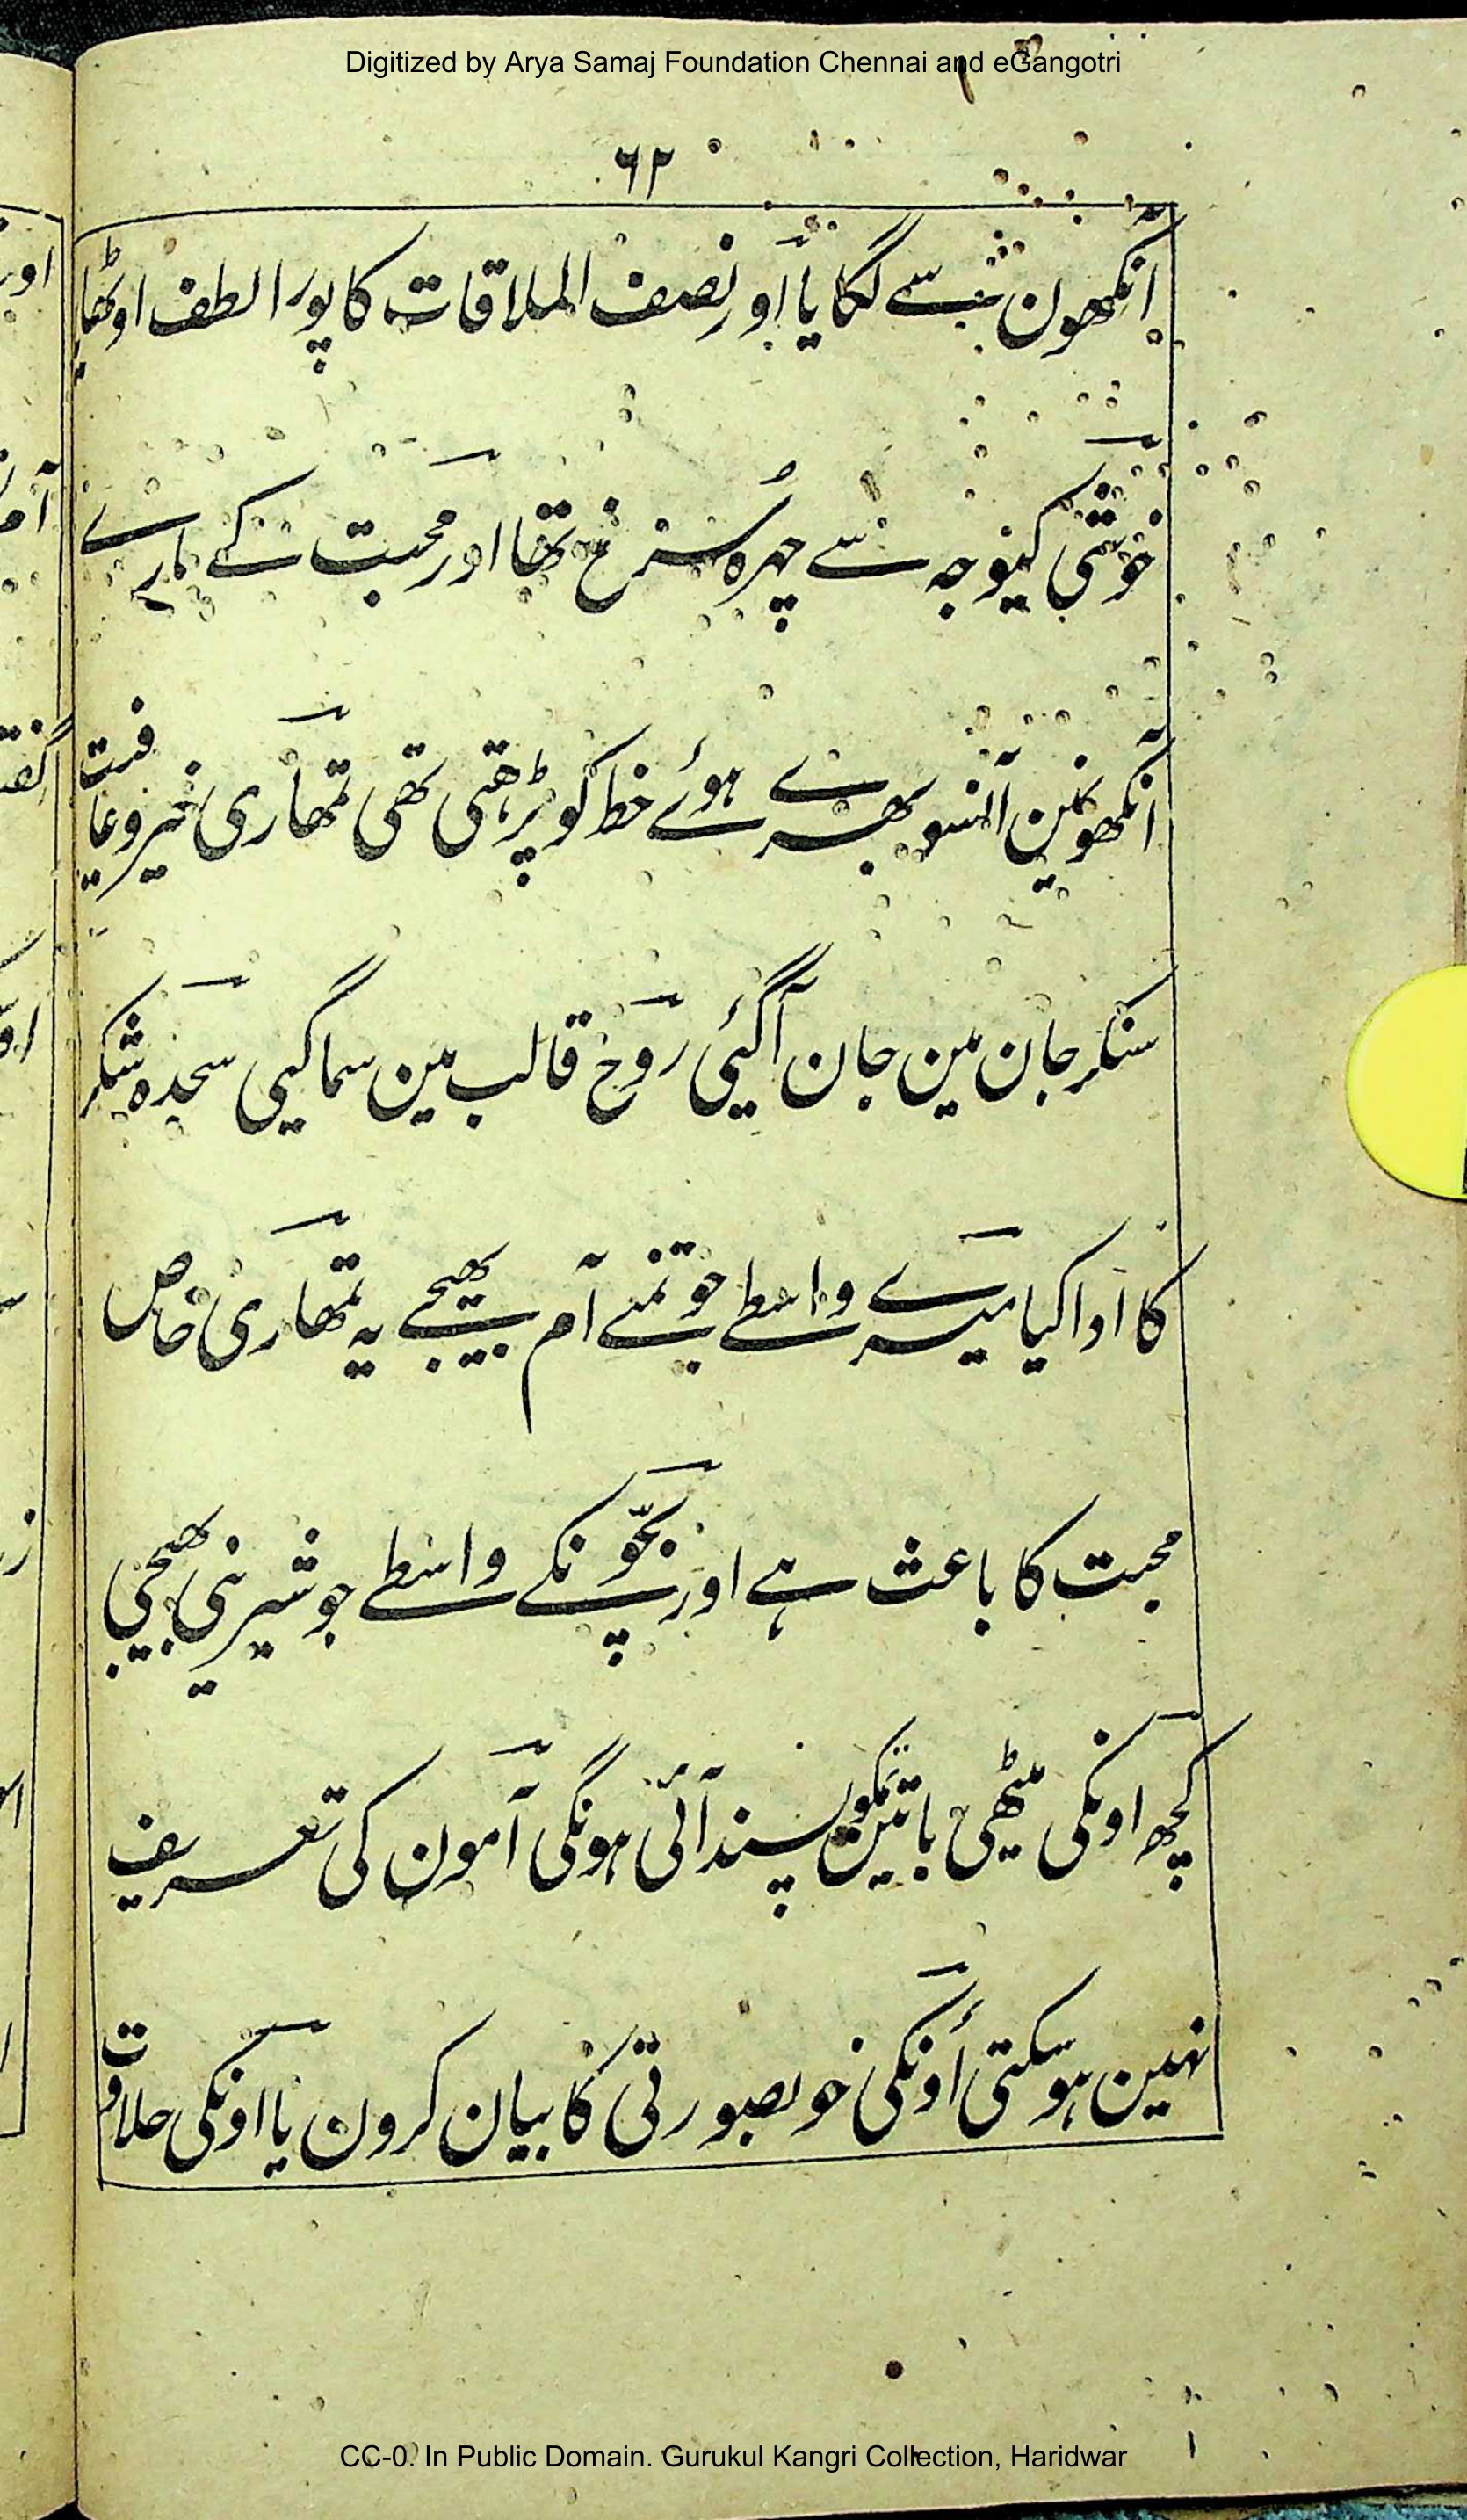 Digitized by Arya Samaj Foundation Chennai and eGangotri
٦٢
آنکھون سے لگایا اور نصف الملاقات کا پورا لطف اوٹھایا
خوشی کیوجہ سے چہرہ سُرخ تھا اور محبت کے مارے
آنکھونمین آنسو بھرے ہوئے خط کو پڑھتی تھی تمھاری خیروعافیت
سنکر جان مین جان آگئی روح قالب مین سماگیی سجدہ شکر
کا ادا کیا میرے واسطے جو تمنے آم بھیجے یہ تمھاری خاص
محبت کا باعث ہے اور بچّونکے واسطے جو شیرینی بھیجی
کچھ اونکی میٹھی باتین تمکو پسند آئی ہونگی آمون کی تعریف
نہین ہوسکتی اونکی خوبصورتی کا بیان کرون یا اونکی حلاوت
CC-0. In Public Domain. Gurukul Kangri Collection, Haridwar